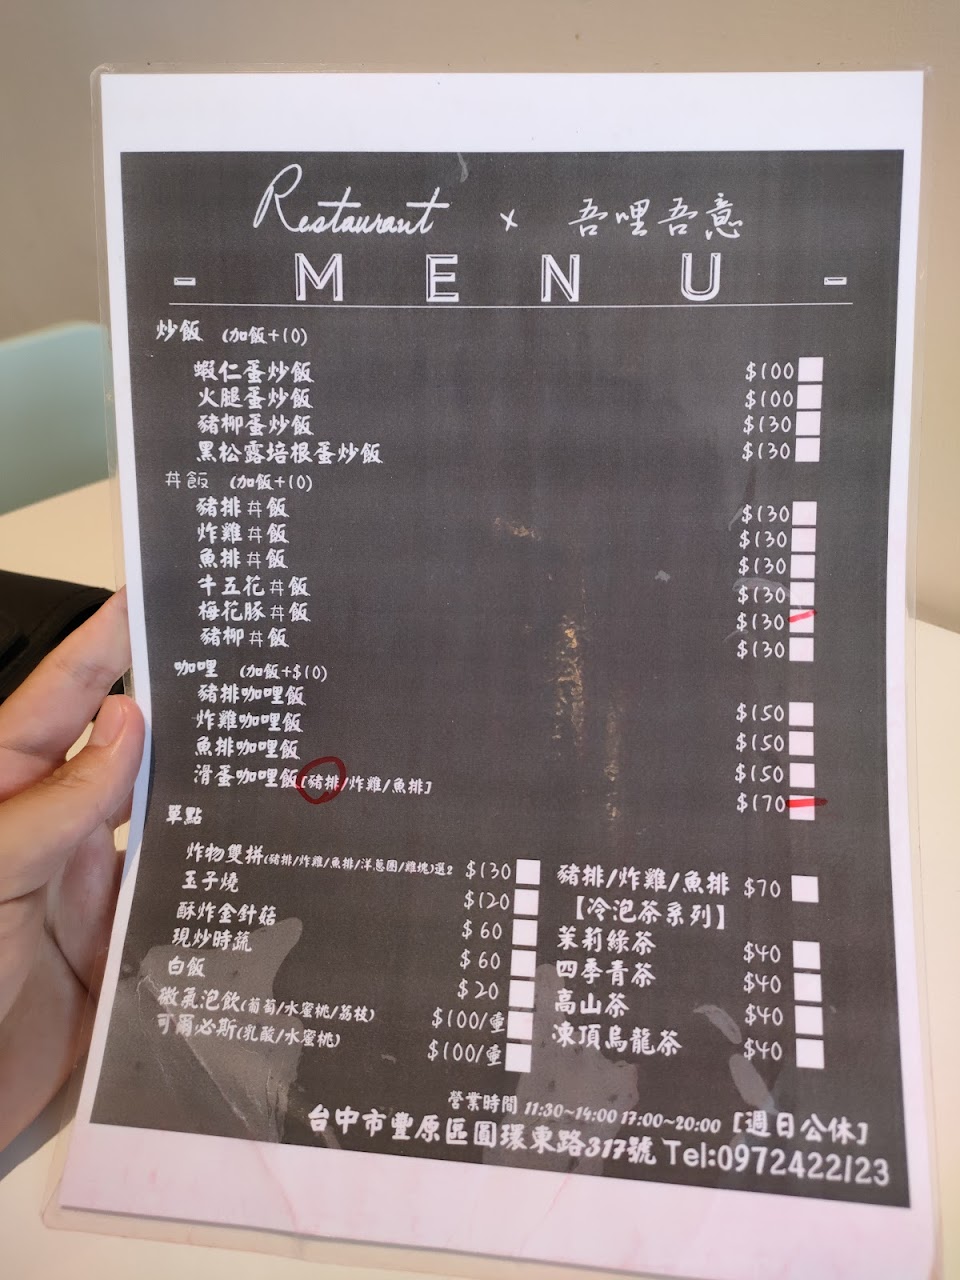 Restaurant x 吾哩吾意
- MENU -
炒飯 (加飯+10)
蝦仁蛋炒飯 $100
火腿蛋炒飯 $100
豬柳蛋炒飯 $130
黑松露培根蛋炒飯 $130
丼飯 (加飯+10)
豬排丼飯 $130
炸雞丼飯 $130
魚排丼飯 $130
牛五花丼飯 $130
梅花豚丼飯 $130
豬柳丼飯 $130
咖哩 (加飯+$10)
豬排咖哩飯 $150
炸雞咖哩飯 $150
魚排咖哩飯 $150
滑蛋咖哩飯[豬排/炸雞/魚排] $170
單點
炸物雙拼(豬排/炸雞/魚排/洋蔥圈/雞塊)選2 $130
玉子燒 $120
酥炸金針菇 $60
現炒時蔬 $60
白飯 $20
微氣泡飲(葡萄/水蜜桃/荔枝) $100/壺
可爾必斯(乳酸/水蜜桃) $100/壺
豬排/炸雞/魚排 $70
【冷泡茶系列】
茉莉綠茶 $40
四季青茶 $40
高山茶 $40
凍頂烏龍茶 $40
營業時間 11:30~14:00 17:00~20:00 [週日公休]
台中市豐原區圓環東路317號 Tel:0972422123